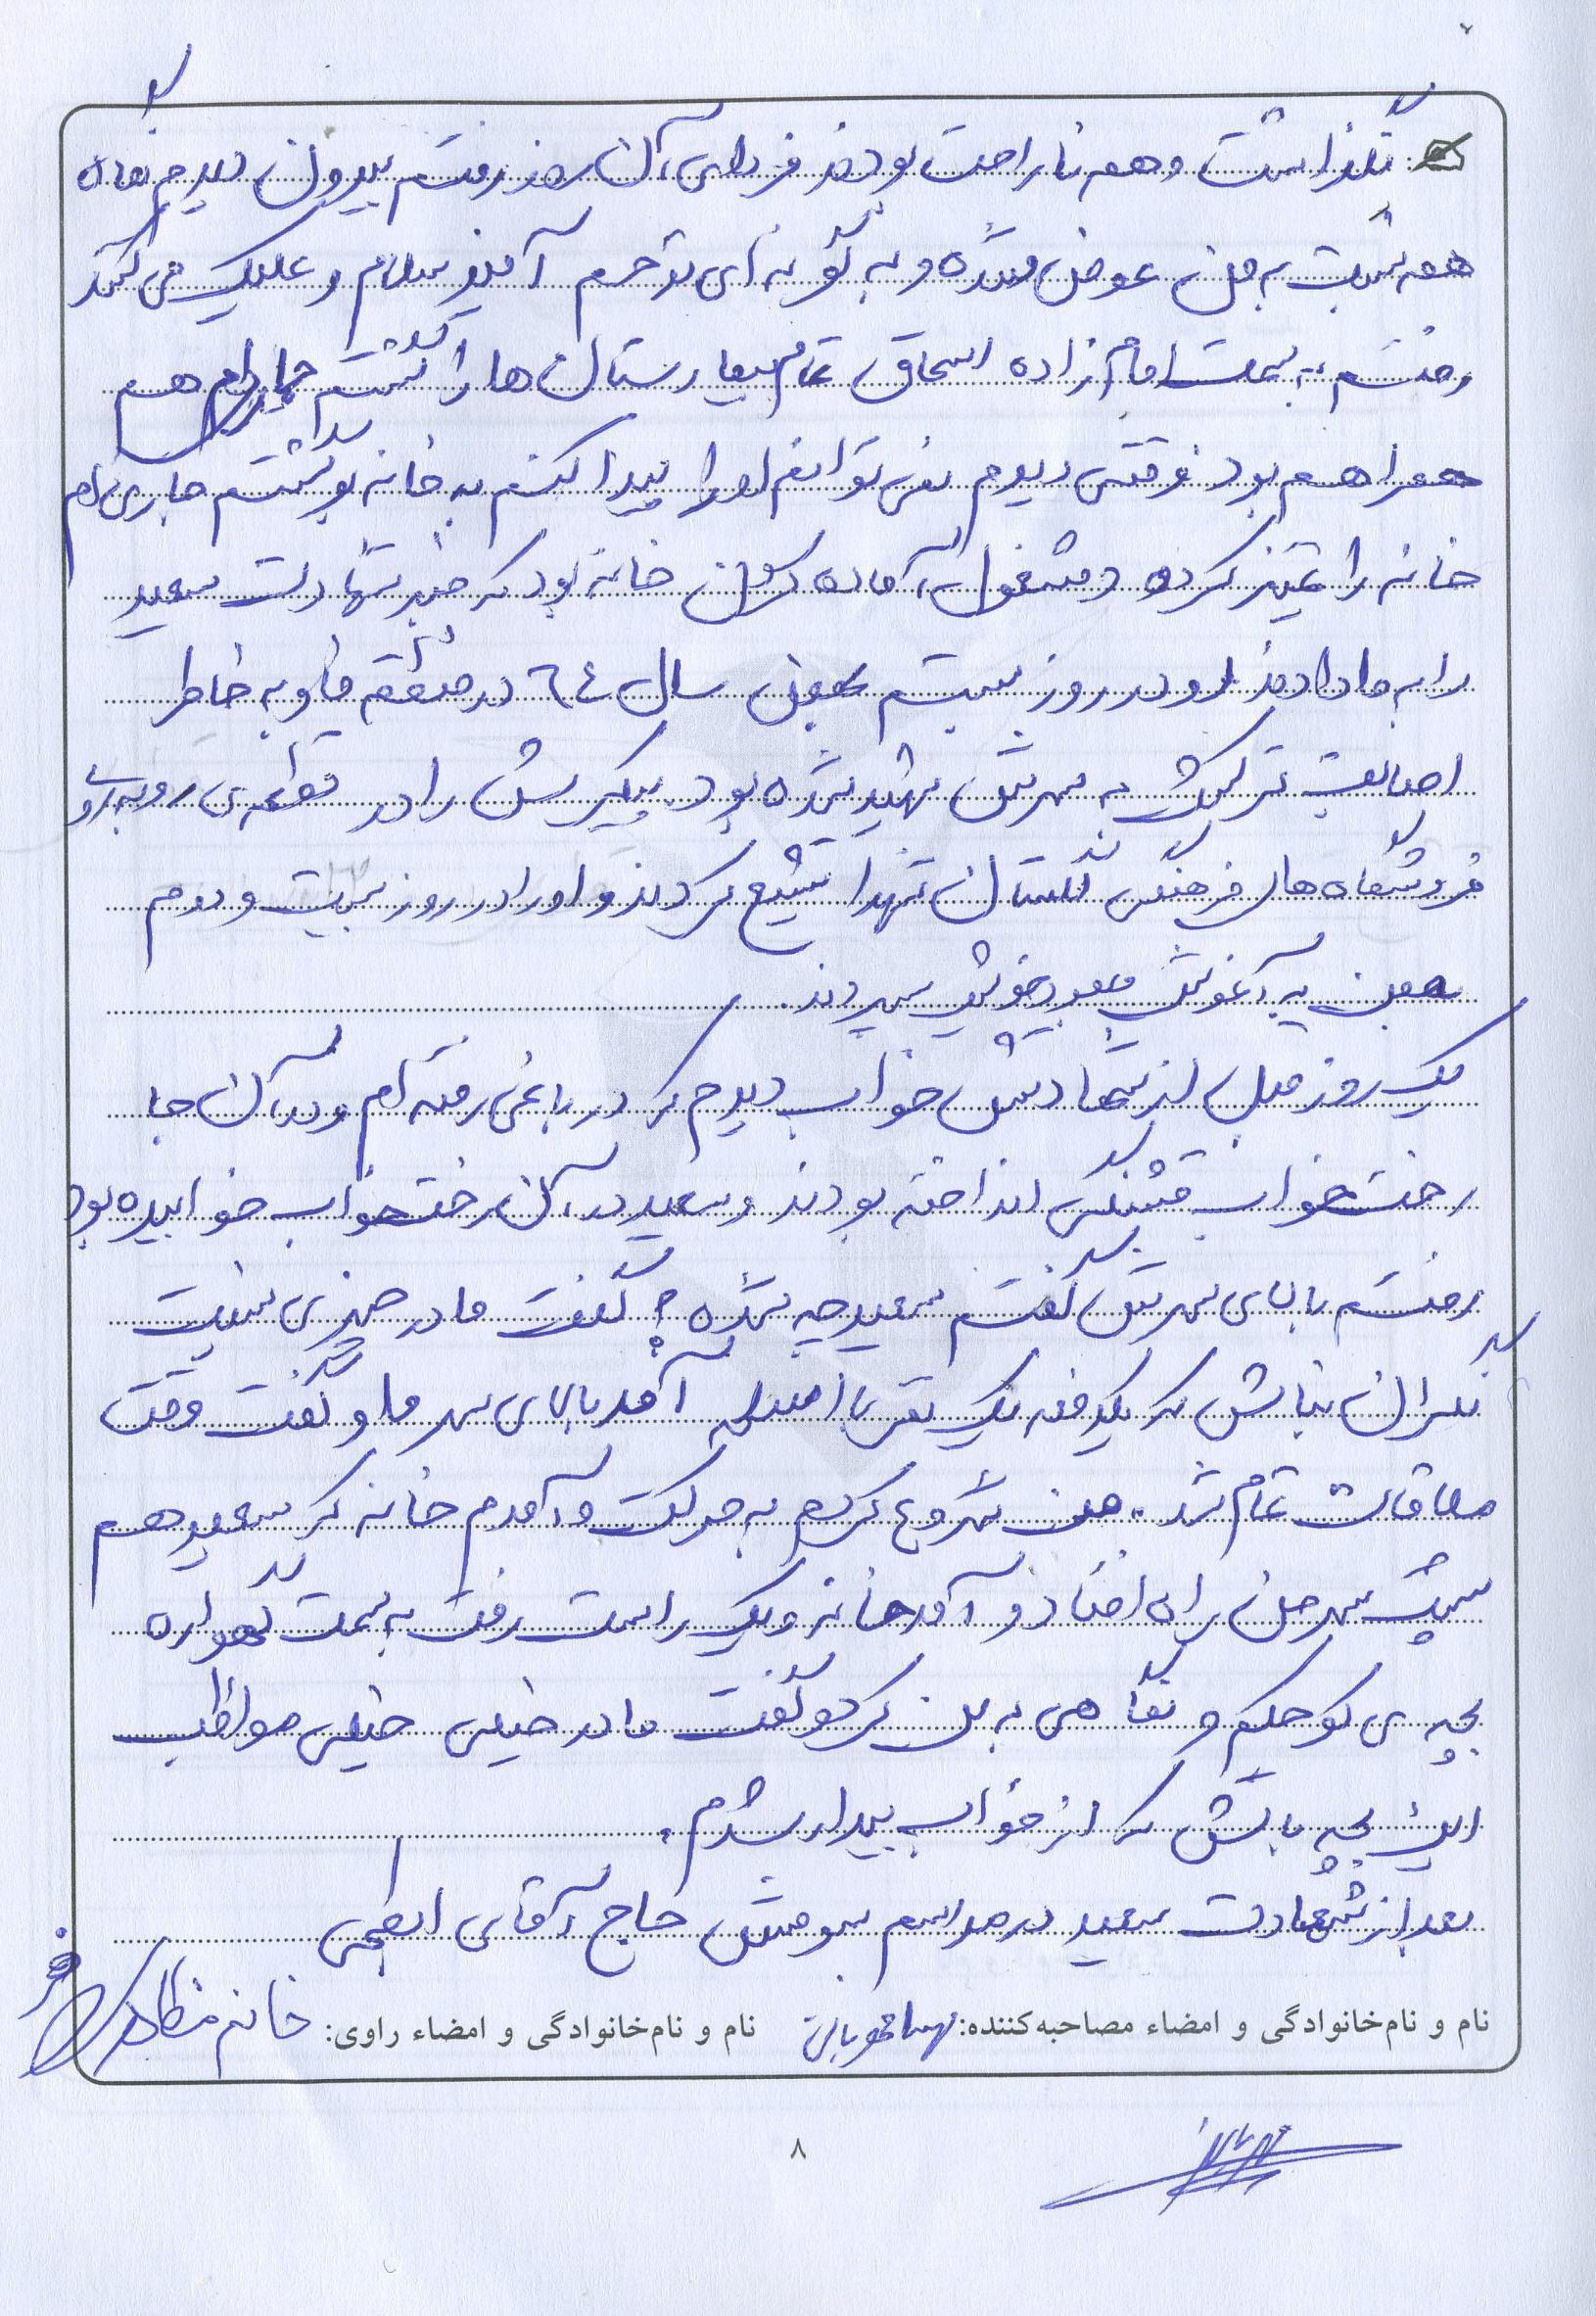 نگذاشت و همه ناراحت بودند فردای آن روز رفتم بیرون دیدم نگاه
همه نسبت به من عوض شده و به گونه ای ترحم آمیز سلام و علیک می کنند
رفتم به سمت امام زاده اسحاق تمام بیمارستان ها را گشتم هم
همراهم بود وقتی دیدم نمی توانم او را پیدا کنم به خانه برگشتم جاری ام
خانه را تمیز کرده و مشغول آماده کردن خانه بود که خبر شهادت سعید
را به ما دادند او در روز بیستم بهمن سال ٦٤ در منطقه فاو به خاطر
اصابت ترکش به سرش شهید شده بود. پیکرش را در قطعه ی روبه روی
فروشگاه های فرهنگی گلستان شهدا تشیع کردند و او را در روز بیست و دوم
بهمن به آغوش معبود خویش سپردند.
یک روز قبل از شهادتش خواب دیدم که در باغی رفته ام و در آن جا
رخت خواب قشنگی انداخته بودند و سعید در آن رخت خواب خوابیده بود
رفتم بالای سرش گفتم سعید چه شده؟ گفت مادر چیزی نیست
نگران نباش که یکدفعه یک نفر با اسلحه آمد بالای سر ما و گفت وقت
ملاقات تمام شد. من شروع کردم به حرکت و آمدم خانه که سعید هم
پشت سر من راه افتاد و آمد خانه و یک راست رفت به سمت گهواره
بچه ی کوچکم و نگاهی به من کرد و گفت مادر خیلی خیلی مواظب
این بچه باش که از خواب بیدار شدم.
بعد از شهادت سعید در مراسم سومش حاج آقای
نام و نام‌خانوادگی و امضاء مصاحبه‌کننده: نام و نام‌خانوادگی و امضاء راوی: خانم
۸